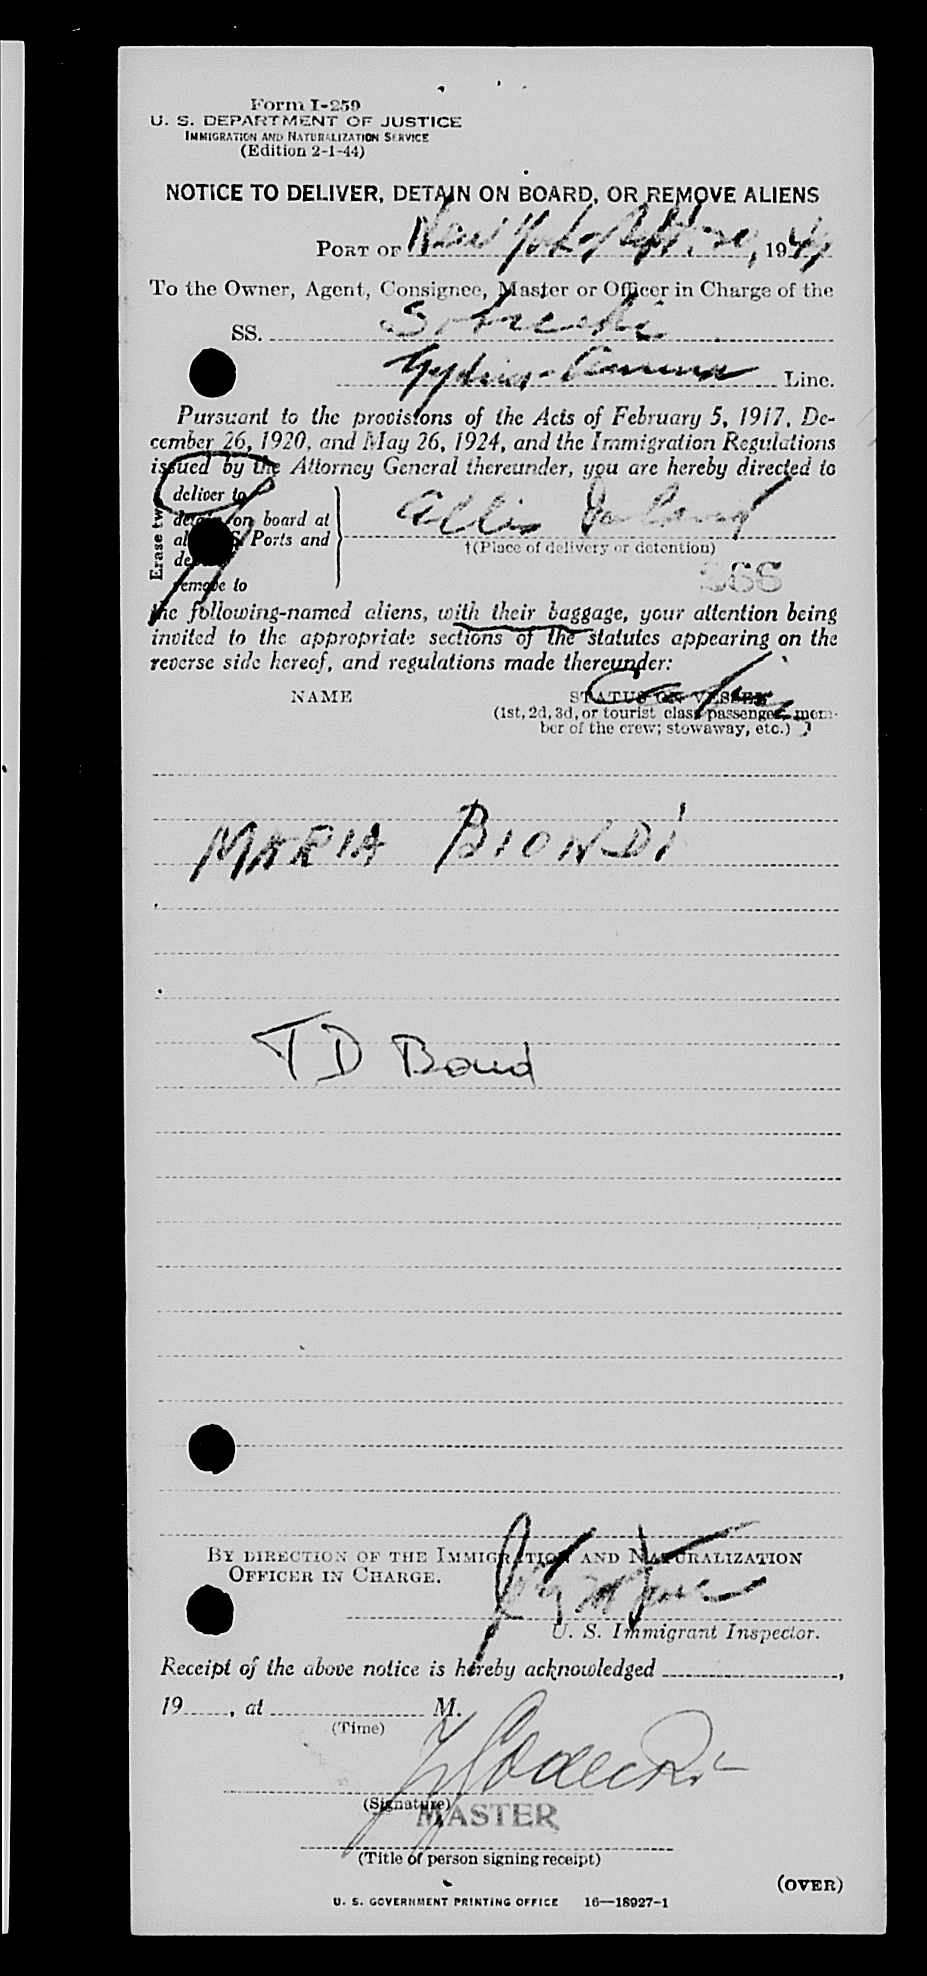 Form I-259
U. S. DEPARTMENT OF JUSTICE
IMMIGRATION AND NATURALIZATION SERVICE
(Edition 2-1-44)
NOTICE TO DELIVER, DETAIN ON BOARD, OR REMOVE ALIENS
PORT OF New York, Sept. 20, 1949
To the Owner, Agent, Consignee, Master or Officer in Charge of the
SS. Sobieski
Gydnia-America Line.
Pursuant to the provisions of the Acts of February 5, 1917, De-
cember 26, 1920, and May 26, 1924, and the Immigration Regulations
issued by the Attorney General thereunder, you are hereby directed to
Erase two
deliver to
detain on board at
al S. Ports and
de
remove to
Ellis Island
†(Place of delivery or detention)
266
the following-named aliens, with their baggage, your attention being
invited to the appropriate sections of the statutes appearing on the
reverse side hereof, and regulations made thereunder:
NAME STATUS ON VESSEL
Cabin
(1st, 2d, 3d, or tourist class passenger, mem-
ber of the crew; stowaway, etc.)
MARIA BIONDI
TD Bond
BY DIRECTION OF THE IMMIGRATION AND NATURALIZATION
OFFICER IN CHARGE.
U. S. Immigrant Inspector.
Receipt of the above notice is hereby acknowledged ,
19 , at M.
(Time)
(Signature)
MASTER
(Title of person signing receipt)
(OVER)
U. S. GOVERNMENT PRINTING OFFICE 16—18927-1